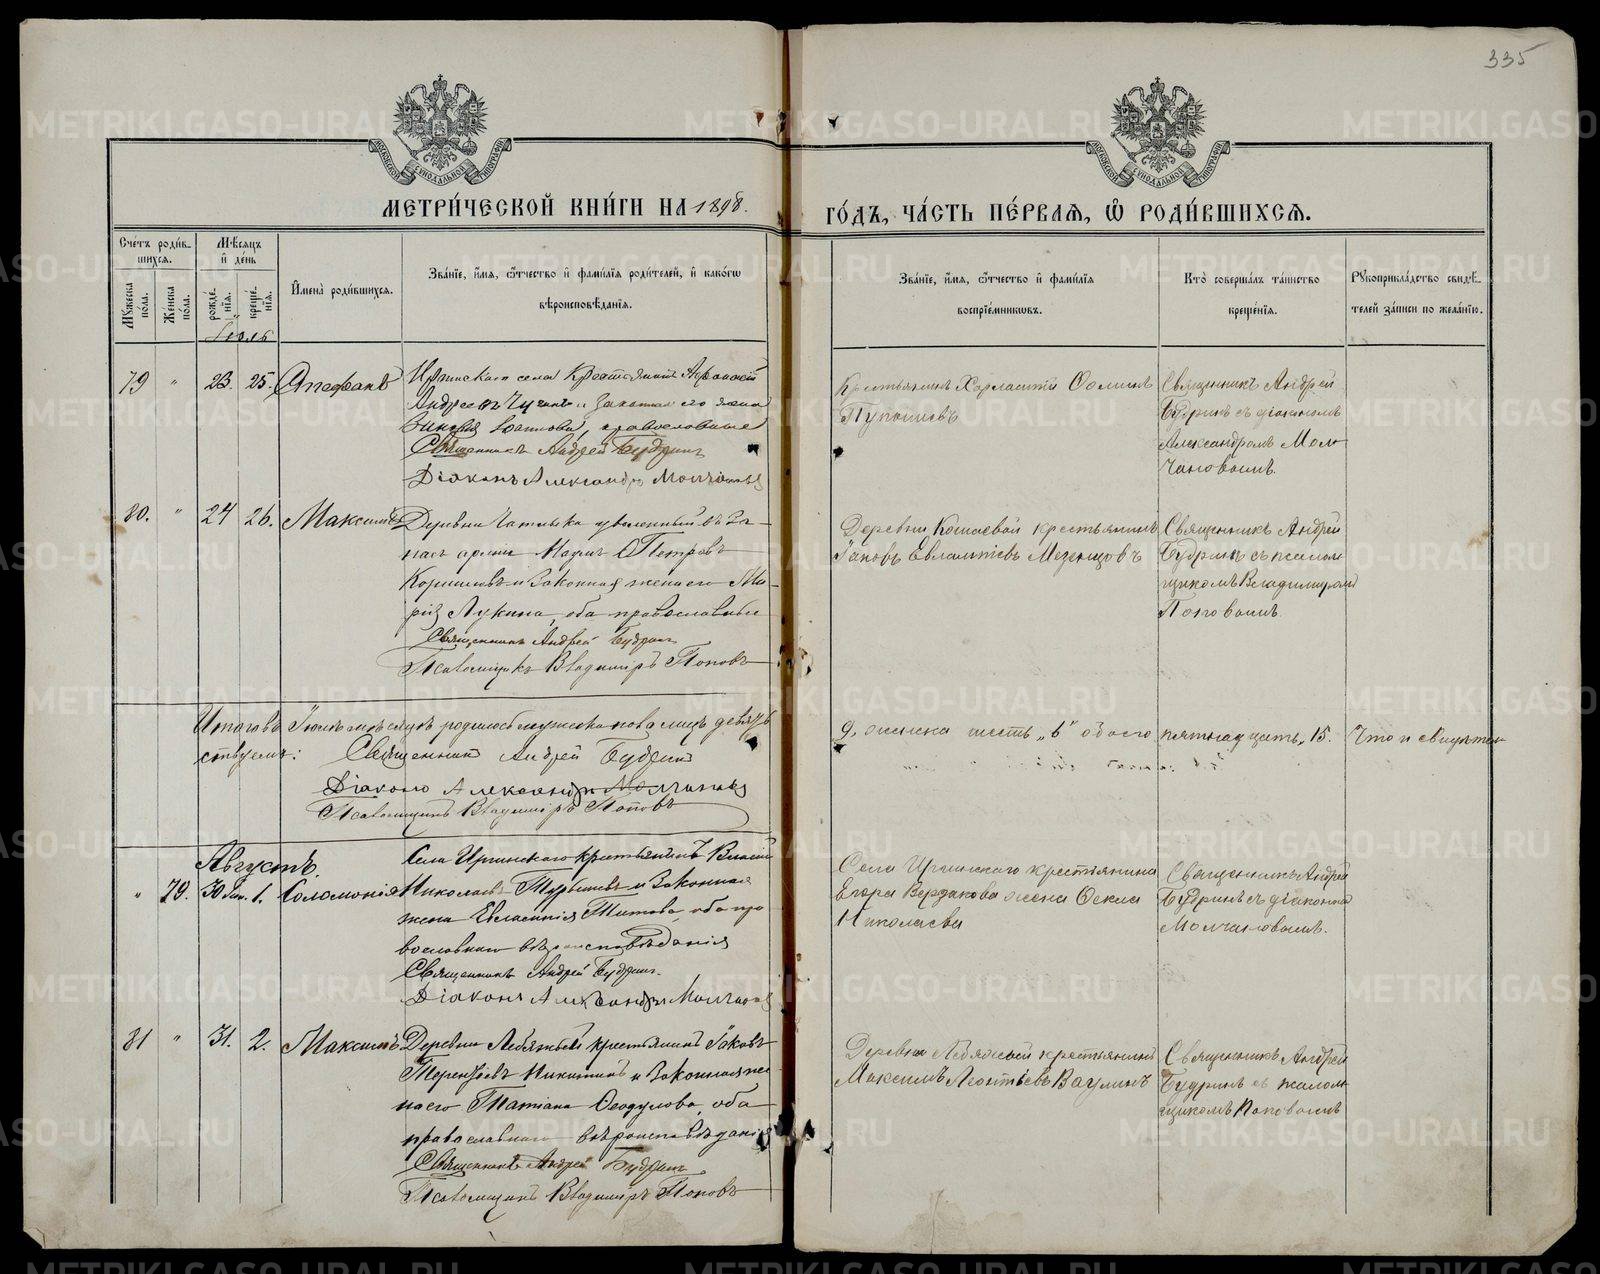 335
МЕТРИ́ЧЕСКОЙ КНИ́ГИ НА 1898.
ГО́ДЪ, ЧА́СТЬ ПЕ́РВАЯ, Ѡ РОДИ́ВШИХСЯ.
Сче́тъ роди́вшихся.
Мѣ́сяцъ и де́нь
Му́жеска по́ла.
Же́нска по́ла.
рожде́нїя.
креще́нїя.
Имена̀ роди́вшихся.
Зва́нїе, и́мя, ѻ҆́тчество и фами́лїя роди́телей, и како́гѡ
вѣроисповѣ́данїя.
Зва́нїе, и́мя, ѻ҆́тчество и фами́лїя
воспрїе́мниковъ.
Кто̀ соверша́лъ та́инство
креще́нїя.
Рукоприкла́дство свидѣ́телей за́писи по жела́нїю.
Іюль
79 " 23. 25. Стефанъ
Иргинскаго села Крестьянинъ Афанасій
Андреевъ и Законная его жена
православные
Священникъ Андрей Будринъ
Діаконъ Александръ Молчановъ
Крестьянинъ Харлампій
Священникъ Андрей
Будринъ съ діакономъ
Александромъ Молчановымъ.
80. " 24 26. Максимъ
Деревни уволенный въ запасъ арміи Петровъ
и Законная жена его Марія Лукина, оба православные
Священникъ Андрей Будринъ
Псаломщикъ Владиміръ Поповъ
Деревни Кошаевой крестьянинъ
Іаковъ Евлампіевъ Мезенцовъ
Священникъ Андрей
Будринъ съ псаломщикомъ Владиміромъ
Поповымъ.
Итого въ Іюлѣ мѣсяцѣ родилось мужска пола лицъ девять
9, женска шесть „6" обоего пятнадцать „15. Что и свидѣтельствуемъ:
Священникъ Андрей Будринъ
Діаконъ Александръ Молчановъ
Псаломщикъ Владиміръ Поповъ
Августъ.
" 79. 30 Іюл. 1. Соломонія
Села Иргинскаго крестьянинъ Власій
Николаевъ и Законная
жена Евлампія Титова, оба православнаго вѣроисповѣданія
Священникъ Андрей Будринъ.
Діаконъ Александръ Молчановъ
Села Иргинскаго крестьянина
Егора Вердакова жена Ѳекла
Николаева
Священникъ Андрей
Будринъ съ діакономъ
Молчановымъ.
81 " 31. 2. Максимъ
Деревни Лебяжьей крестьянинъ Іаковъ
Терентьевъ Никитинъ и Законная жена его Татіана Ѳеодулова, оба
православнаго вѣроисповѣданія
Священникъ Андрей Будринъ
Псаломщикъ Владиміръ Поповъ
Деревни Лебяжьей крестьянинъ
Максимъ Леонтьевъ Ваулинъ
Священникъ Андрей
Будринъ съ псаломщикомъ Поповымъ
METRIKI.GASO-URAL.RU